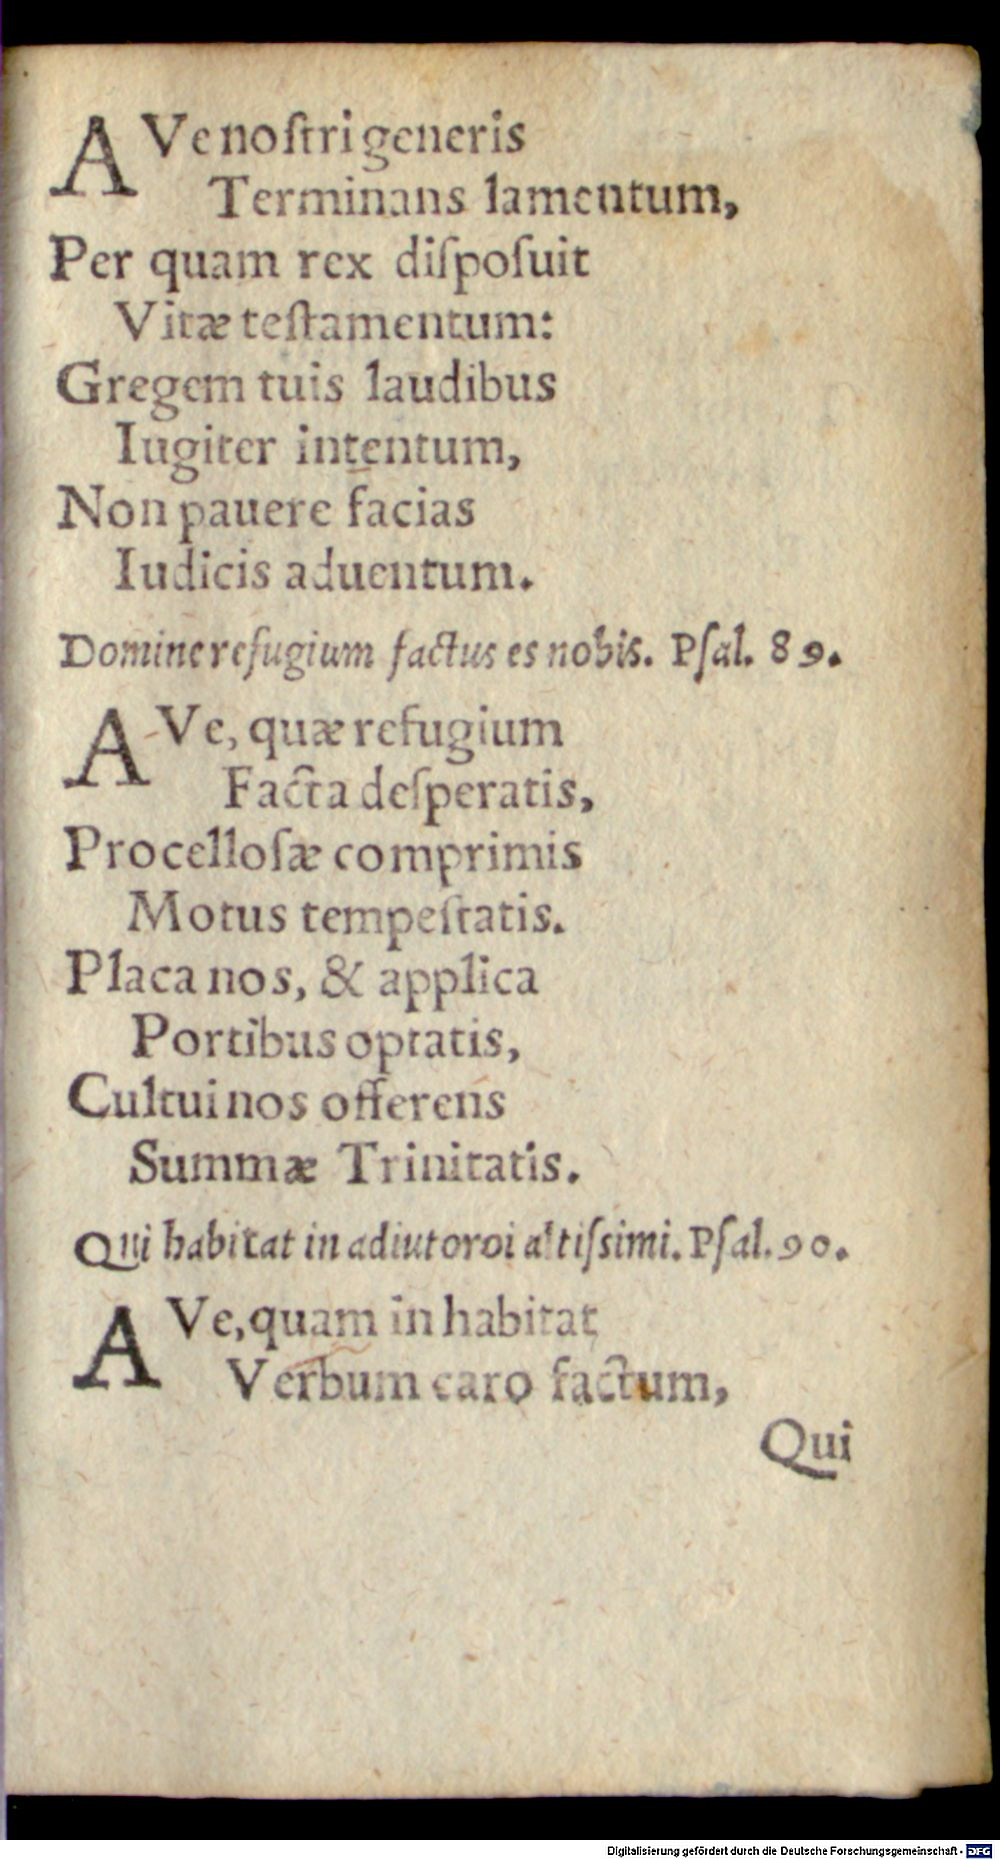 AVe noſtri generis
Terminans lamentum,
Per quam rex diſpoſuit
Vitæ teſtamentum:
Gregem tuis laudibus
Iugiter intentum,
Non pauere facias
Iudicis aduentum.
Domine refugium factus es nobis. Pſal. 89.
AVe, quæ refugium
Facta deſperatis,
Procelloſæ comprimis
Motus tempeſtatis.
Placa nos, & applica
Portibus optatis,
Cultui nos offerens
Summæ Trinitatis.
Qui habitat in adiutoroi altiſsimi. Pſal. 90.
AVe, quam inhabitat
Verbum caro factum,
Qui
Digitalisierung gefördert durch die Deutsche Forschungsgemeinschaft - DFG